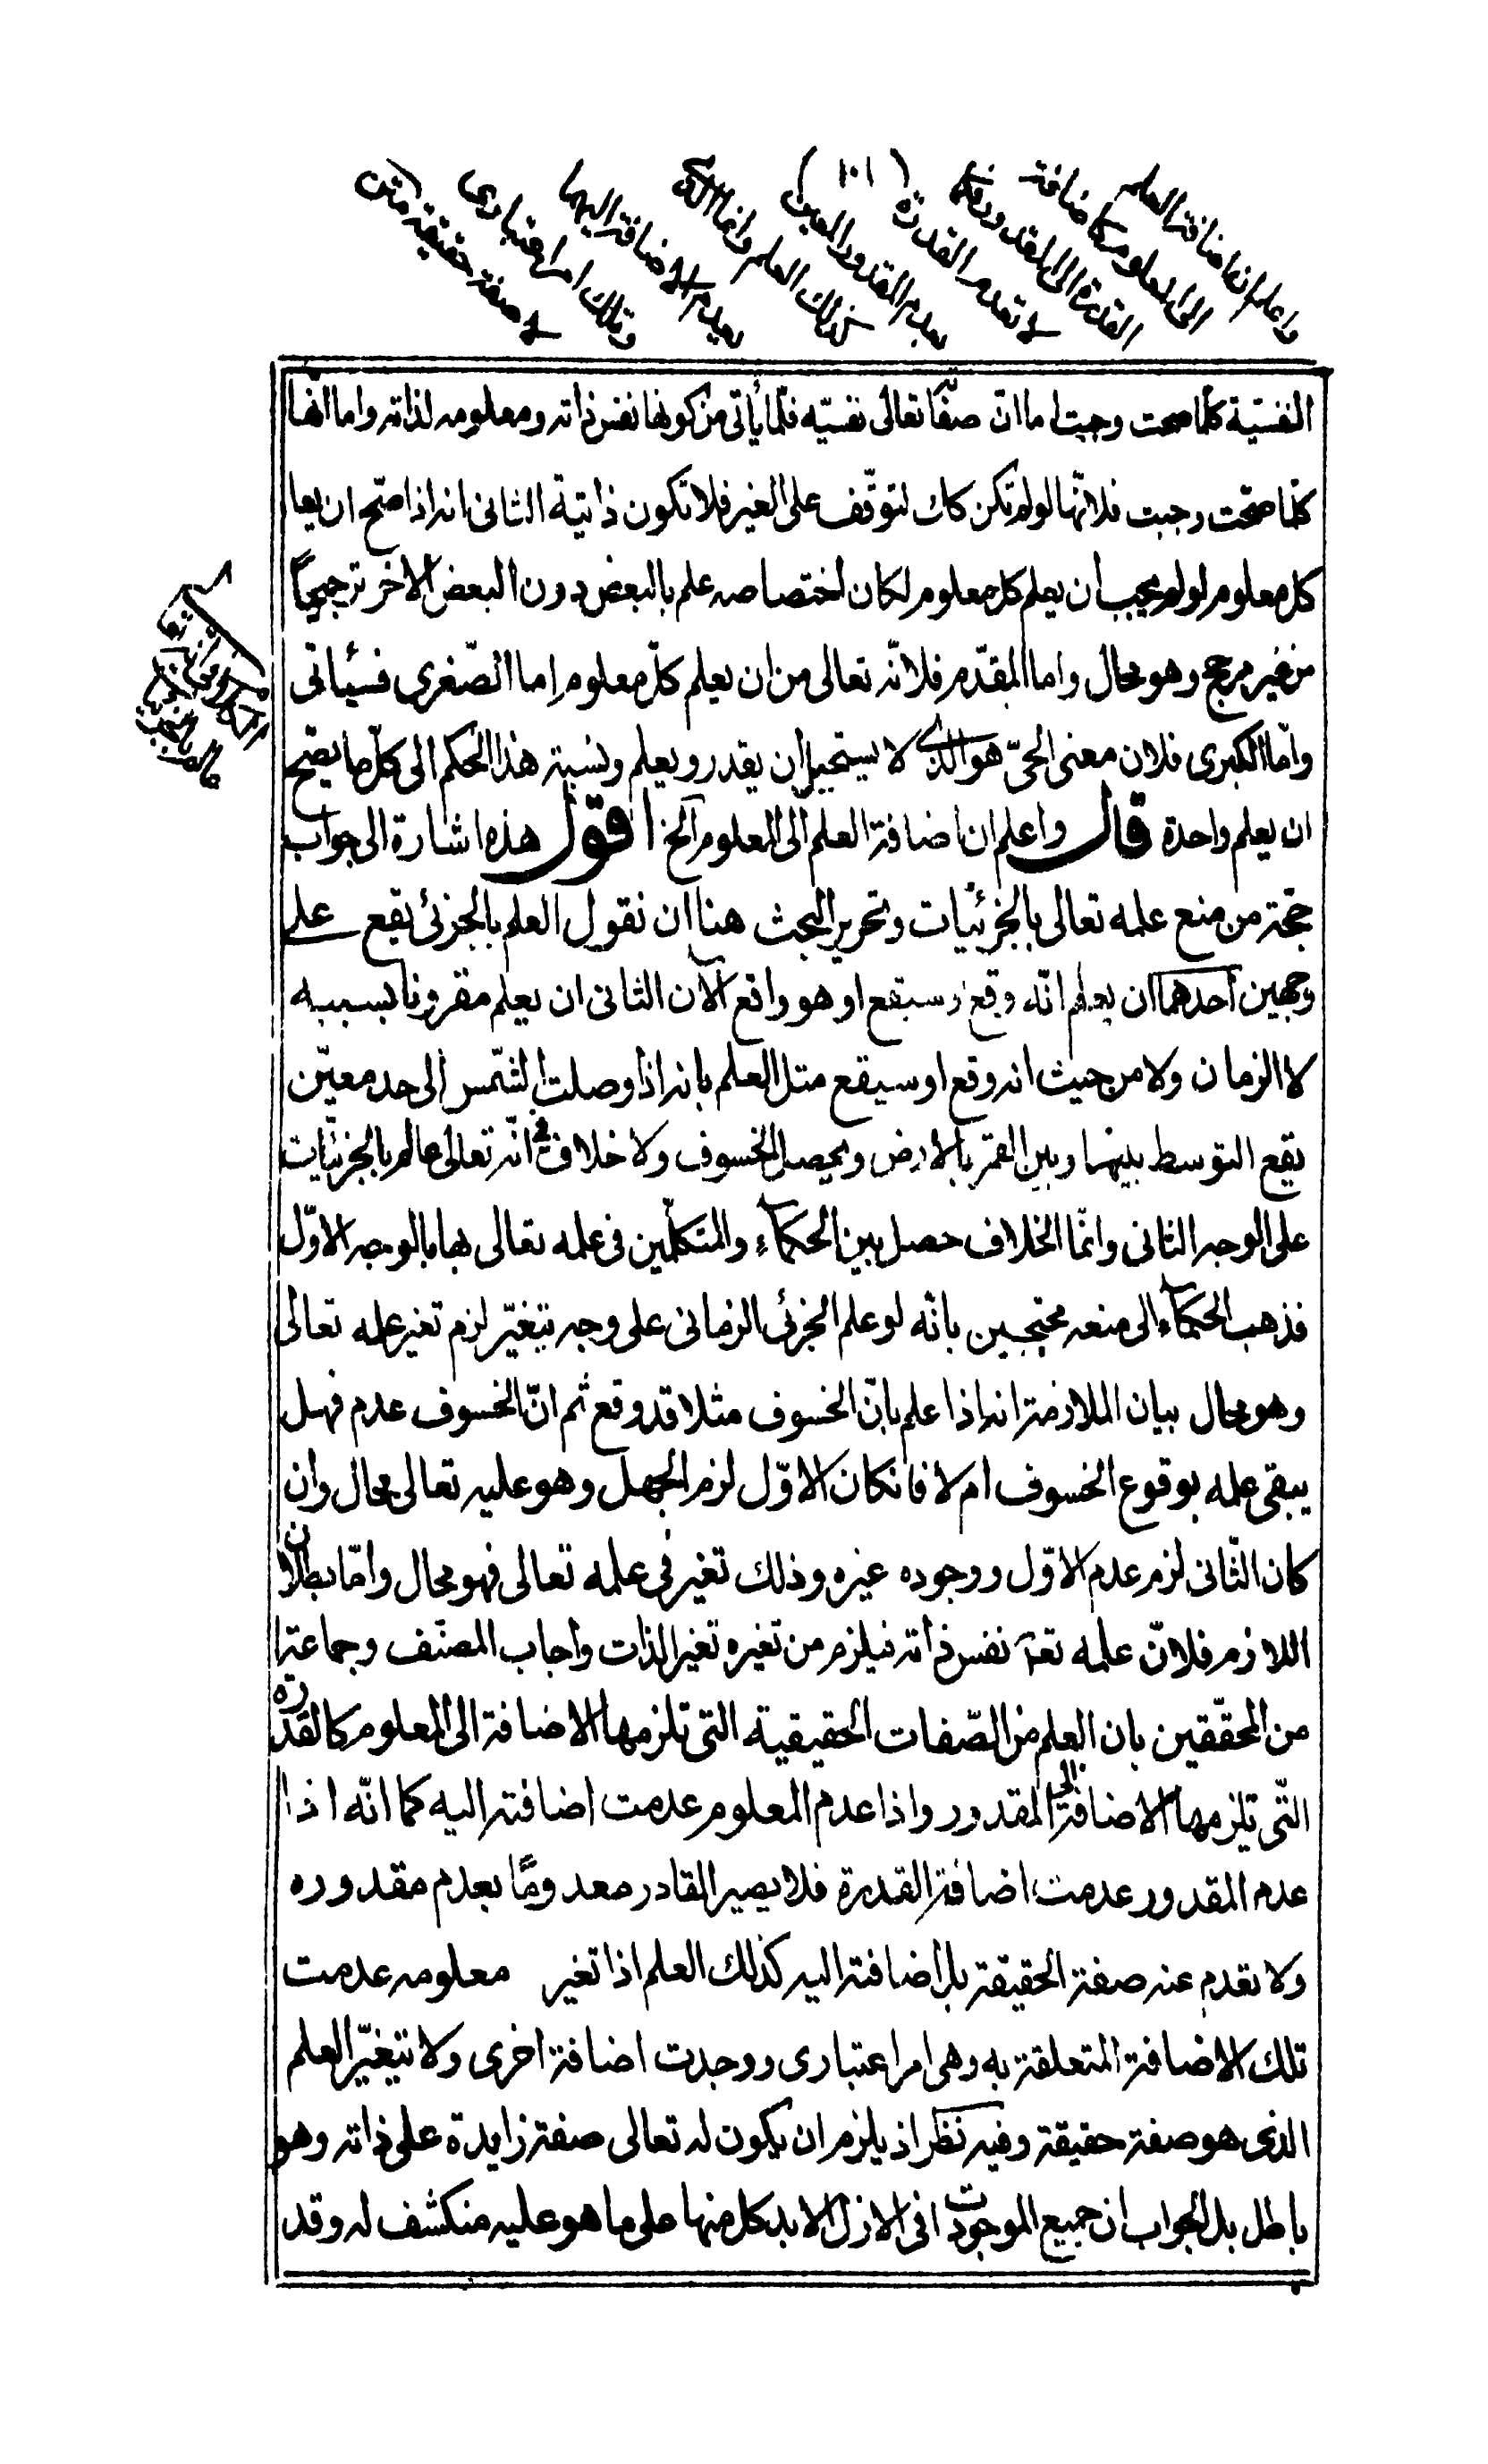 (١٠١)
واعلم ان اضافة العلم
الى المعلوم كاضافة
القدرة الى المقدور وفكما
لا تعدم القدرة
بعدم المقدور المعين
كذلك العلم وانما
يعدم الاضافة اليهما
وتلك امر اعتبارى
لا صفة حقيقية متن
النفسيّة كلّما صحت وجبت اما انّ صفاته تعالى نفسيّه فلما يأتى من كونها نفس ذاته ومعلومه لذاته واما انها
كلّما صحّت وجبت فلانّها لو لم تكن كك لتوقّف على الغير فلا تكون ذاتية الثانى انه اذا صحّ ان يعلم
كل معلوم لو لم يجب ان يعلم كل معلوم لكان اختصاصه علم بالبعض دون البعض الاخر ترجيحاً
من غير مرجح وهو محال واما المقدّم فلانّه تعالى من ان يعلم كلّ معلوم اما الصّغرى فسيأتى
وامّا الكبرى فلان معنى الحىّ هو الذى لا يستحيل ان يقدر ويعلم ونسبة هذا الحكم الى كلّ ما يصّح
ان يعلم واحدة قال واعلم ان اضافة العلم الى المعلوم الخ اقول هذه اشارة الى جواب
حجّة من منع علمه تعالى بالجزئيات وتحرير البحث هنا ان نقول العلم بالجزئى يقع على
وجهين احدهما ان يعلم انّه وقع وسيقع او هو واقع الآن الثانى ان يعلم مقرونا بسببه
لا الزمان ولا من حيث انه وقع او سيقع مثل العلم بانه اذا وصلت الشّمس الى حد معيّن
يقع التوسط بينها وبين القمر بالارض ويحصل الخسوف ولا خلاف فى انّه تعالى عالم بالجزئيّات
على الوجه الثانى وانّما الخلاف حصل بين الحكماء والمتكلّمين فى علمه تعالى بها بالوجه الاوّل
فذهب الحكماء الى منعه محتجين بانّه لو علم الجزئى الزمانى على وجه يتغيّر لزم تغير علمه تعالى
وهو محال بيان الملازمة انه اذا علم بانّ الخسوف مثلا قد وقع ثم انّ الخسوف عدم فهل
يبقى علمه بوقوع الخسوف ام لا فانكان الاوّل لزم الجهل وهو عليه تعالى محال وان
كان الثّانى لزم عدم الاوّل ووجوده غيره وذلك تغير فى علمه تعالى فهو محال وامّا بطلان
اللازم فلانّ علمه تعه نفس ذاته فيلزم من تغيره تغير الذات واجاب المصنّف وجماعة
من المحقّقين بان العلم من الصّفات الحقيقية التى تلزمها الاضافة الى المعلوم كالقدرة
التّى تلزمها الاضافة الى المقدور واذا عدم المعلوم عدمت اضافته اليه كما انّه اذا
عدم المقدور عدمت اضافة القدرة فلا يصير القادر معدومًا بعدم مقدوره
ولا تعدم عنه صفة الحقيقة بل اضافته اليه كذلك العلم اذا تغير معلومه عدمت
تلك الاضافة المتعلقة به وهى امر اعتبارى ووجدت اضافة اخرى ولا يتغيّر العلم
الذى هو صفة حقيقة وفيه نظر اذ يلزم ان يكون له تعالى صفة زايدة على ذاته وهو
باطل بل الجواب ان جميع الموجودات فى الازل الابد كل منها على ما هو عليه منكشف له وقد